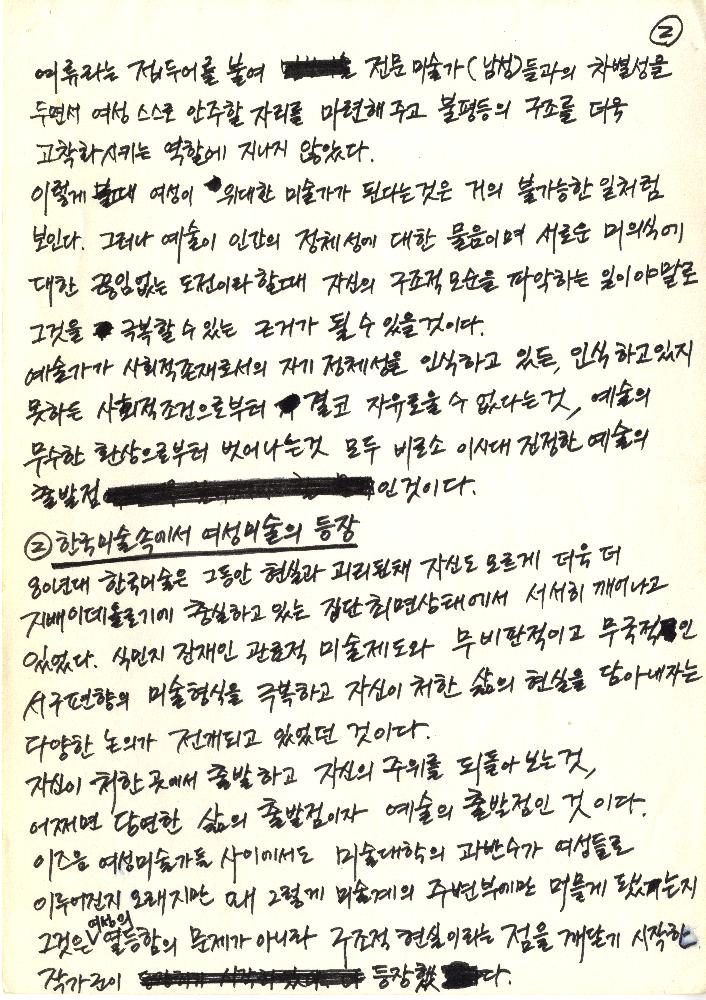 ②
여류라는 접두어를 붙여 전문 미술가(남성)들과의 차별성을
두면서 여성 스스로 안주할 자리를 마련해주고 불평등의 구조를 더욱
고착화시키는 역할에 지나지 않았다.
이렇게 볼때 여성이 위대한 미술가가 된다는것은 거의 불가능한 일처럼
보인다. 그러나 예술이 인간의 정체성에 대한 물음이며 새로운 미의식에
대한 끊임없는 도전이라 할때 자신의 구조적 모순을 파악하는 일이야말로
그것을 극복할 수 있는 근거가 될 수 있을것이다.
예술가가 사회적존재로서의 자기 정체성을 인식하고 있든, 인식하고있지
못하든 사회적조건으로부터 결코 자유로울 수 없다는것, 예술의
무수한 환상으로부터 벗어나는것 모두 비로소 이시대 진정한 예술의
출발점인것이다.
② 한국미술속에서 여성미술의 등장
80년대 한국미술은 그동안 현실과 괴리된채 자신도 모르게 더욱 더
지배이데올로기에 충실하고 있는 집단최면상태에서 서서히 깨어나고
있었다. 식민지 잔재인 관료적 미술제도와 무비판적이고 무국적인
서구편향의 미술형식을 극복하고 자신이 처한 삶의 현실을 담아내자는
다양한 논의가 전개되고 있었던 것이다.
자신이 처한 곳에서 출발하고 자신의 주위를 되돌아 보는것,
어쩌면 당연한 삶의 출발점이자 예술의 출발점인 것이다.
이즈음 여성미술가들 사이에서도 미술대학의 과반수가 여성들로
이루어진지 오래지만 왜 그렇게 미술계의 주변부에만 머물게 됐는지
그것은 여성의 열등함의 문제가 아니라 구조적 현실이라는 점을 깨닫기 시작한
작가군이 등장했다.